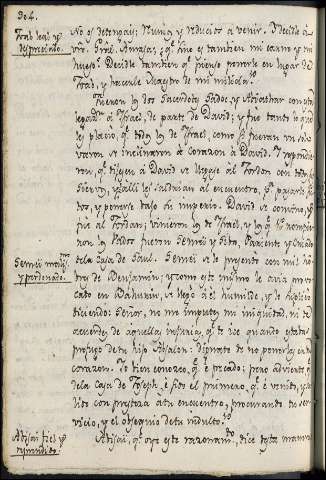 304.
Joab leal y
despreciado.
No os detengais; Numa y reducios a venir. Decidle à
vro. Gral. Amasa; qᵉ èl mio es tambien mi carne y mi
hueso. Decidle tambien qᵉ pienso ponerle en lugar de
Joab, y hacerle Maestro de mi milicia.
Fueron los dos Sacerdotes Sadoc, y Abiathar con esta
legacia à Israel, de parte de David; y fue tanto lo que
les placiò, qᵉ todos los de Israel, como si fueran un solo
varon se inclinaron de corazon à David. Y respondie-
ron, qᵉ dijesen à David se llegase al Jordan con todos sus
Siervos, y allí les saldrian al encuentro, pª pasarle
y ponerse bajo su imperio. David se convino, y
fue al Jordan; vinieron los de Israel, y los qᵉ
ron los fueron Semeì y Siba, Pariente y Criado
Semeì
y perdonado.
de la casa de Saul. Semeì se le presentò con mil hom-
bres de Benjamin; y como este mismo le avia provo-
cado en Bahurim, se llegò à el humilde, y le suplicò
diciendo: Señor, no me imputes mi iniquidad, ni te
acuerdes de aquellas injurias, qᵉ te dice quando estabas
profugo de tu hijo Absalon: dignate de no ponerlas en tu
corazon. Yo bien conozco, qᵉ è pecado; pero advierte qᵉ
de la casa de Joseph, è sido el primero, qᵉ è venido, y sa-
lido con presteza à tu encuentro, procurando tu ser-
vicio, y el obsequio de tu indulto.
Abisai fiel y
reprendido.
Abisai, qᵉ oyò este razonamᵗᵒ, dice esta manera